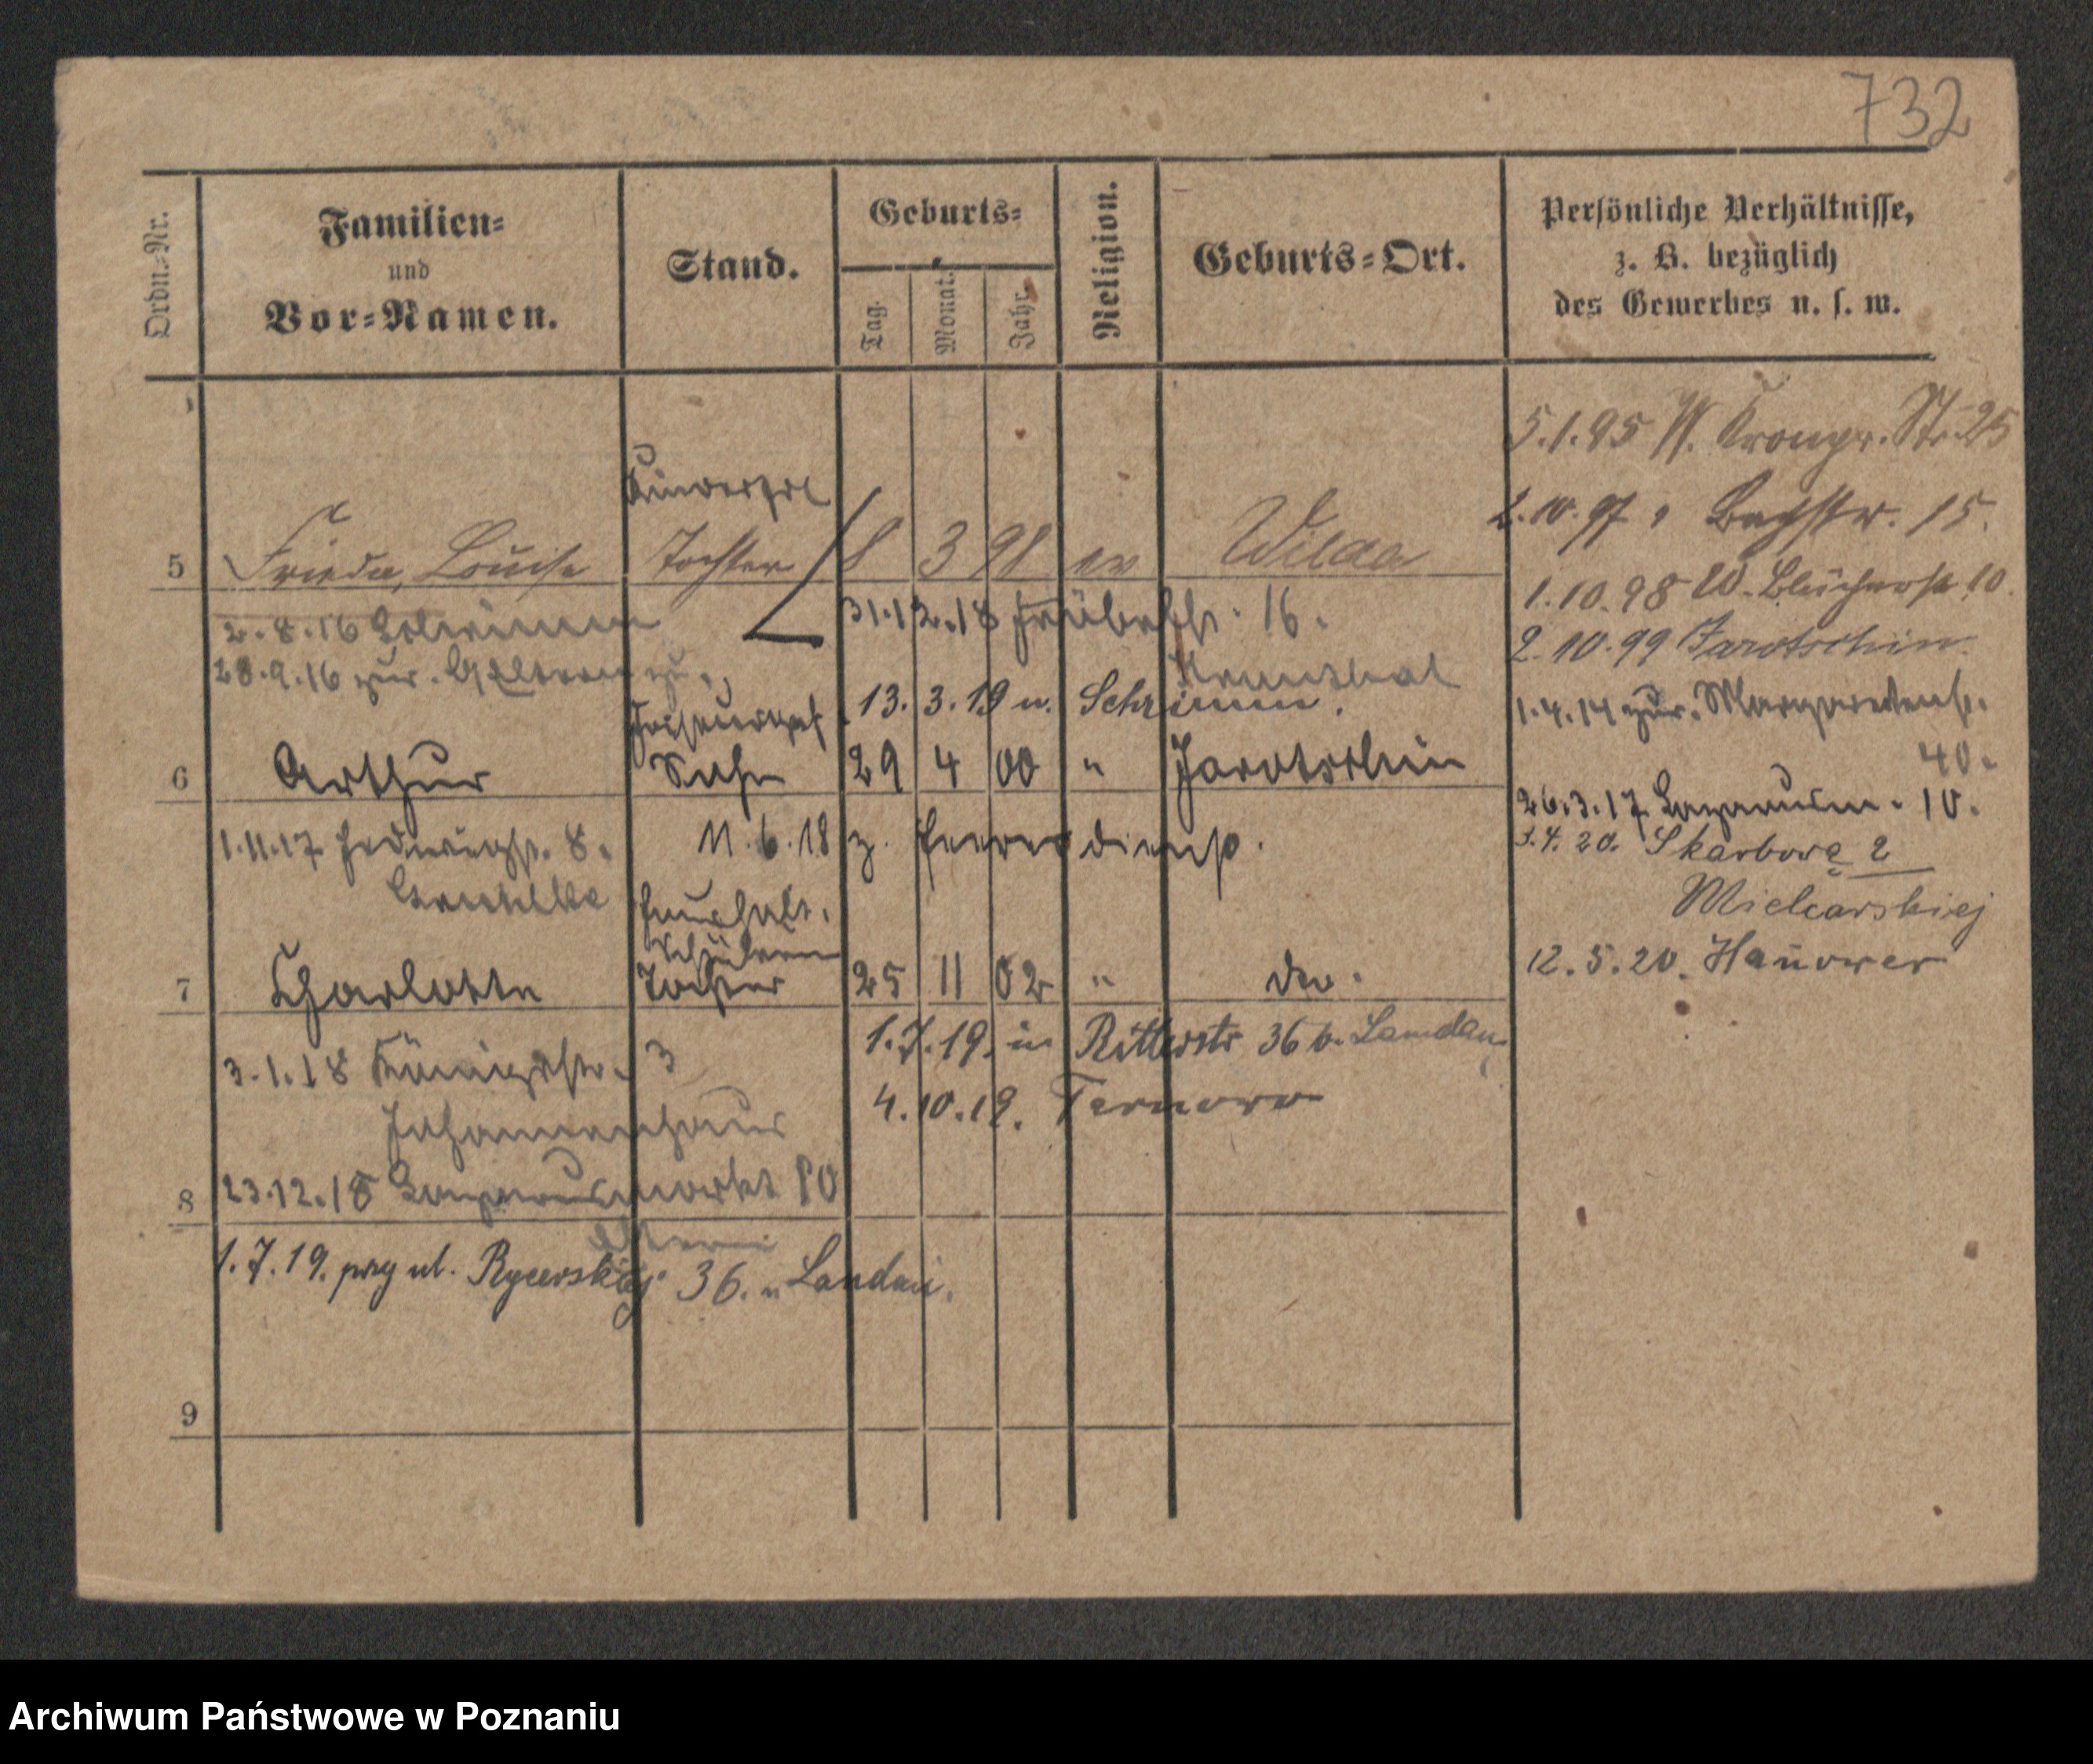 732
Ordn.-Nr.
Familien-
und
Vor-Namen.
Stand.
Geburts-
Tag.
Monat.
Jahr.
Religion.
Geburts-Ort.
Persönliche Verhältnisse,
z. B. bezüglich
des Gewerbes u. s. w.
5.1.95 W. Kronpr. Str. 25
2.10.97 " 15.
1.10.98 W. Blücherstr. 10.
2.10.99 Jarotschin
1.4.14 zur. Margaretenstr.
40.
26.3.17 10.
3.4.20. Skarbowa 2
Mielcarskiej
12.5.20. Hanower
5 Frieda, Louise Tochter 8 3 98 ev Wilda
2.8.16
31.12.18 16.
28.9.16 zur. zu.
13.3.19 n. Schrimm.
6 Arthur Sohn 29 4 00 " Jarotschin
1.11.17 Hedwigstr. 8.
11.6.18 z. Heeresdienst.
Haushalt.
Schülerin
7 Charlotte Tochter 25 11 02 " do.
3.1.18 Königstr. 3
1.7.19. in Ritterstr 36 b. Landau
Johannenhaus
4.10.19. Tarnowo
8
23.12.18 Lazarusmarkt 10
Eltern
1.7.19. przy ul. Rycerskiej 36. u Landau.
9
Archiwum Państwowe w Poznaniu